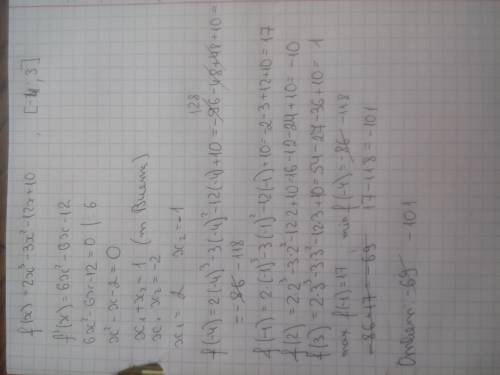 f(x) = 2x³-3x²-12x+10 , [-4; 3]
f'(x) = 6x²-6x-12
6x²-6x-12=0 | 6
x²-x-2=0
x₁+x₂=1 (т Виета)
x₁·x₂=-2
x₁= 2 x₂=-1
128
f(-4) = 2(-4)³-3(-4)²-12(-4)+10=-86-48+48+10=
=-86 -118
f(-1) = 2·(-1)³-3(-1)²-12(-1)+10=-2-3+12+10=17
f(2) = 2·2³-3·2²-12·2+10=16-12-24+10=-10
f(3) = 2·3³-3·3²-12·3+10=54-27-36+10= 1
max f(-1)=17 min f(-4)=-86 -118
-86+17=-69 17-118=-101
Ответ: -69 -101